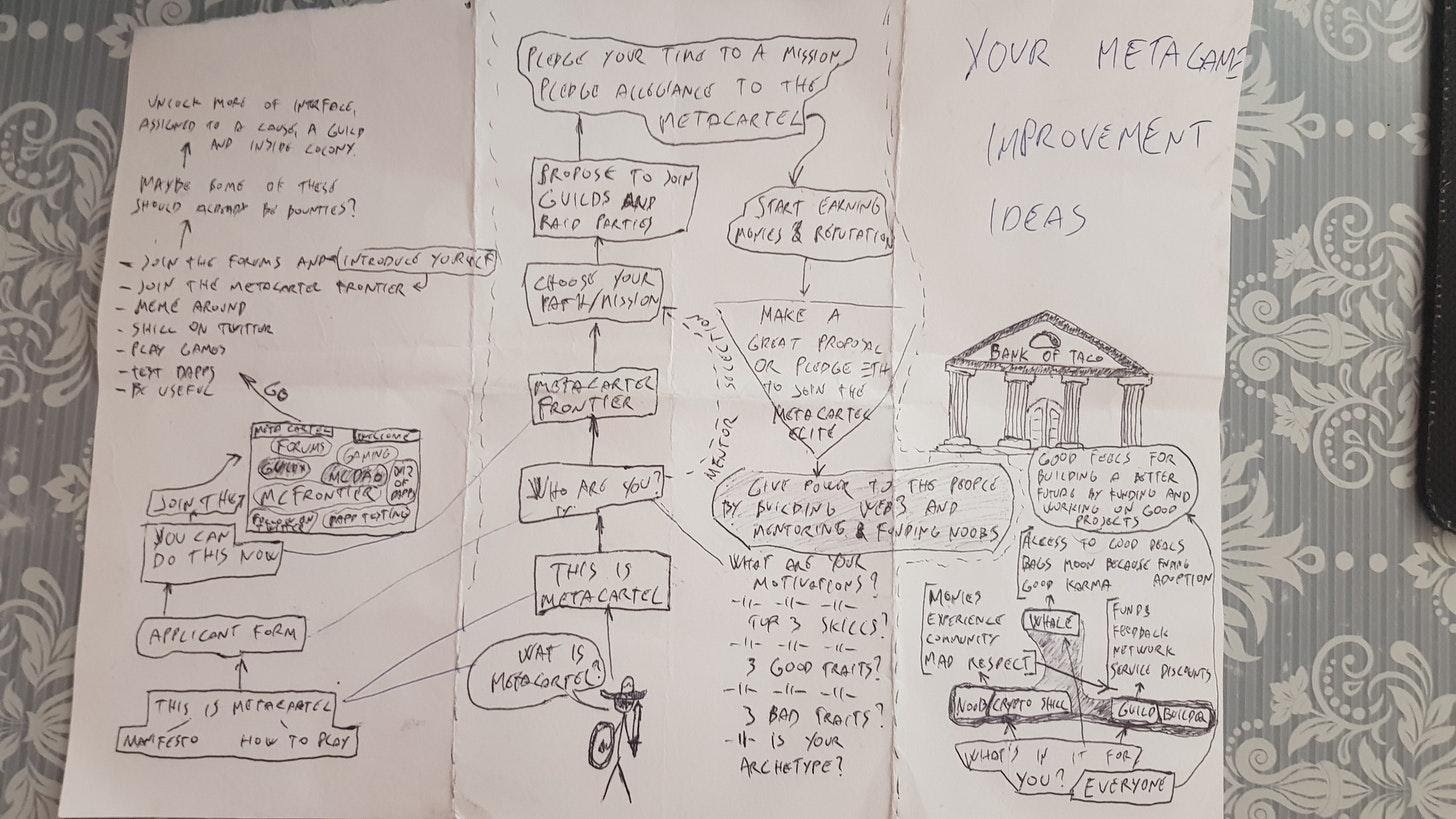 UNLOCK MORE OF INTERFACE,
ASSIGNED TO A CAUSE, A GUILD
AND INSIDE COLONY.
MAYBE SOME OF THESE
SHOULD ALREADY BE BOUNTIES?
- JOIN THE FORUMS AND INTRODUCE YOURSELF
- JOIN THE METACARTEL FRONTIER
- MEME AROUND
- SHILL ON TWITTUR
- PLAY GAMES
- TEST DAPPS
- BE USEFUL
GO
META CARTEL WELCOME
FORUMS
GAMING
GUILDS
MCDAO
OF DAPPS
MCFRONTIER
FOLLOW ON TWITTER
DAPP TESTING
JOIN THEM
YOU CAN
DO THIS NOW
APPLICANT FORM
THIS IS METACARTEL
MANIFESTO HOW TO PLAY
PLEDGE YOUR TIME TO A MISSION
PLEDGE ALLEGIANCE TO THE
METACARTEL
PROPOSE TO JOIN
GUILDS AND
RAID PARTIES
CHOOSE YOUR
PATH/MISSION
METACARTEL
FRONTIER
WHO ARE YOU?
THIS IS
METACARTEL
WAT IS
METACARTEL?
START EARNING
MONIES & REPUTATION
MAKE A
GREAT PROPOSAL
OR PLEDGE ETH
TO JOIN THE
METACARTEL
ELITE
MENTOR SELECTION
GIVE POWER TO THE PEOPLE
BY BUILDING WEB3 AND
MENTORING & FUNDING NOOBS
WHAT ARE YOUR
MOTIVATIONS?
-11- -11- -11-
TOP 3 SKILLS?
-11- -11- -11-
3 GOOD TRAITS?
-11- -11- -11-
3 BAD TRAITS?
-11- IS YOUR
ARCHETYPE?
YOUR METAGAME
IMPROVEMENT
IDEAS
BANK OF TACO
GOOD FEELS FOR
BUILDING A BETTER
FUTURE BY FUNDING AND
WORKING ON GOOD
PROJECTS
ACCESS TO GOOD DEALS
BAGS MOON BECAUSE ADOPTION
GOOD KARMA
MONIES
EXPERIENCE
COMMUNITY
MAD RESPECT
WHALE
FUNDS
FEEDBACK
NETWORK
SERVICE DISCOUNTS
NOOB/CRYPTO SHILL
GUILD BUILDER
WHAT'S IN IT FOR
YOU?
EVERYONE